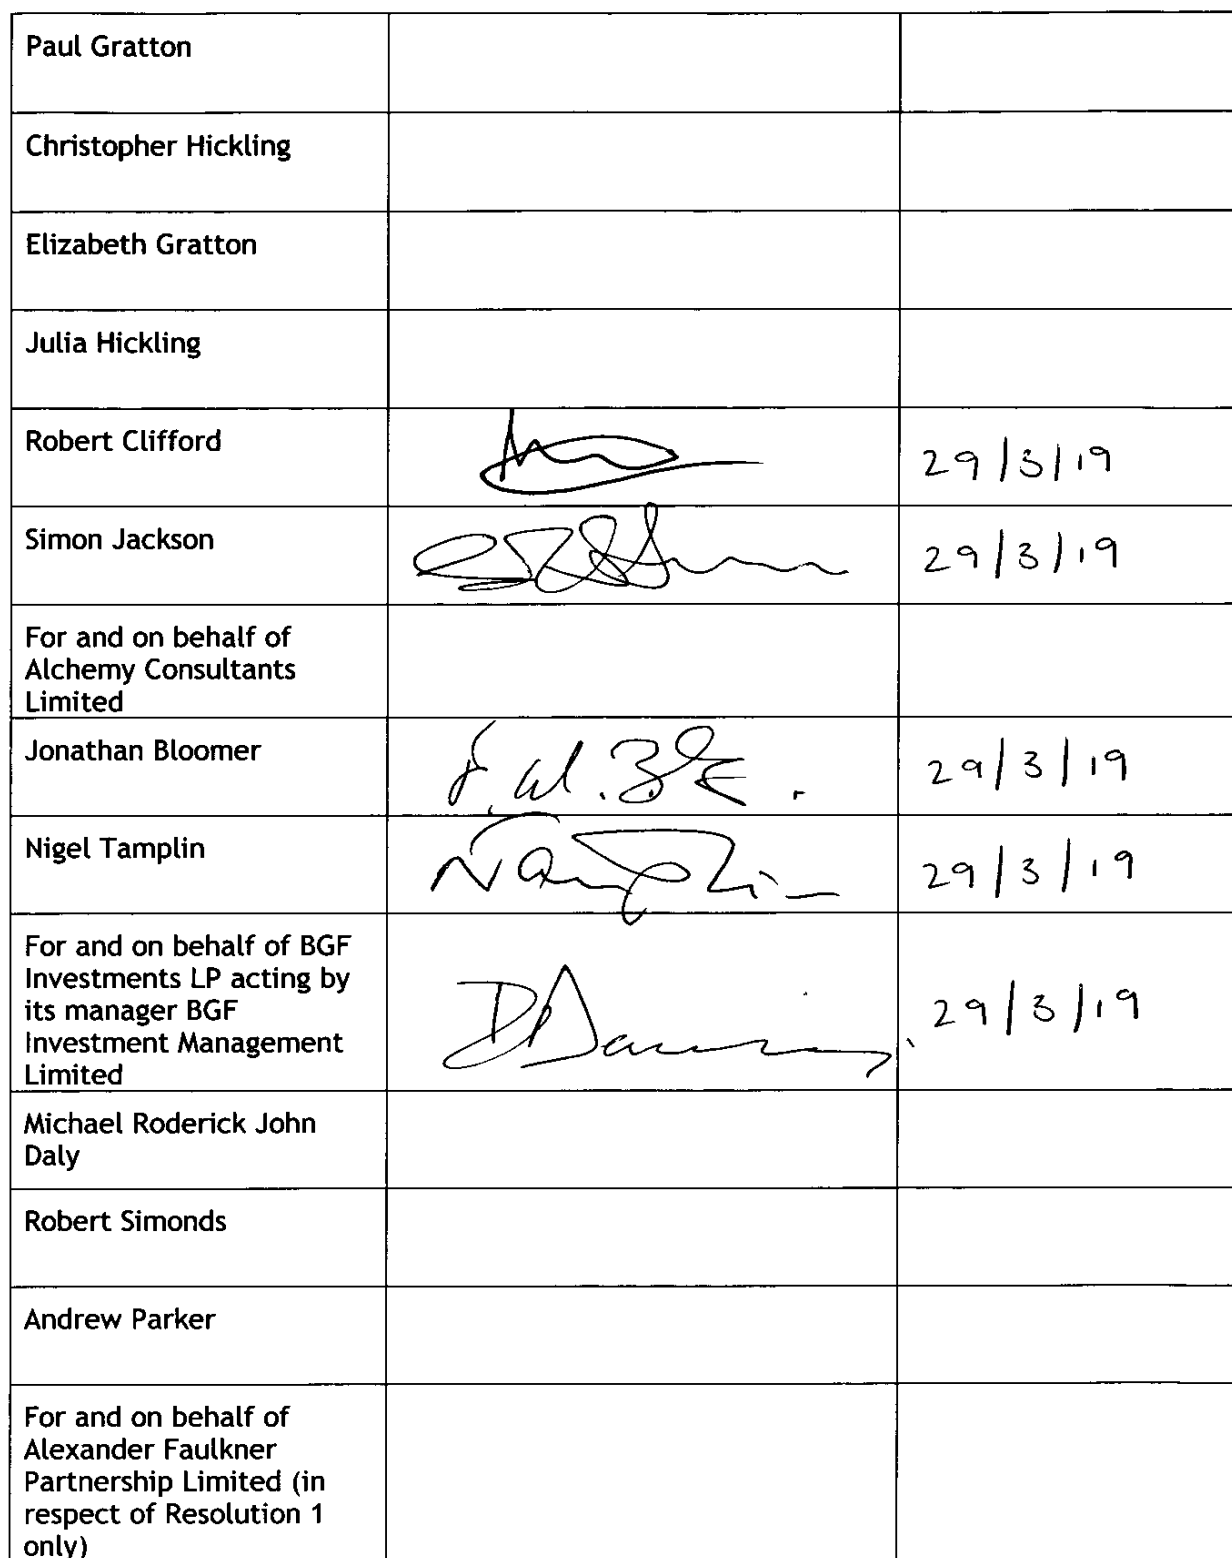 Paul Gratton
Christopher Hickling
Elizabeth Gratton
Julia Hickling
Robert Clifford
29/3/19
Simon Jackson
29/3/19
For and on behalf of
Alchemy Consultants
Limited
Jonathan Bloomer
29/3/19
Nigel Tamplin
NTamplin
29/3/19
For and on behalf of BGF
Investments LP acting by
its manager BGF
Investment Management
Limited
29/3/19
Michael Roderick John
Daly
Robert Simonds
Andrew Parker
For and on behalf of
Alexander Faulkner
Partnership Limited (in
respect of Resolution 1
only)